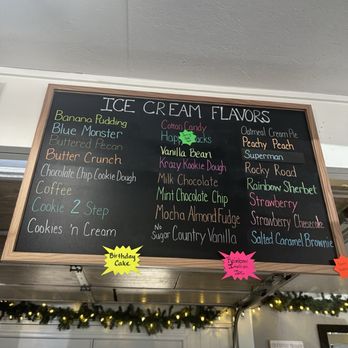 ICE CREAM FLAVORS
Banana Pudding
Blue Monster
Buttered Pecan
Butter Crunch
Chocolate Chip Cookie Dough
Coffee
Cookie 2 Step
Cookies 'n Cream
Cotton Candy
Happy Tracks
Vanilla Bean
Krazy Kookie Dough
Milk Chocolate
Mint Chocolate Chip
Mocha Almond Fudge
No Sugar Country Vanilla
Oatmeal Cream Pie
Peachy Peach
Superman
Rocky Road
Rainbow Sherbet
Strawberry
Strawberry Cheesecake
Salted Caramel Brownie
Birthday
Cake